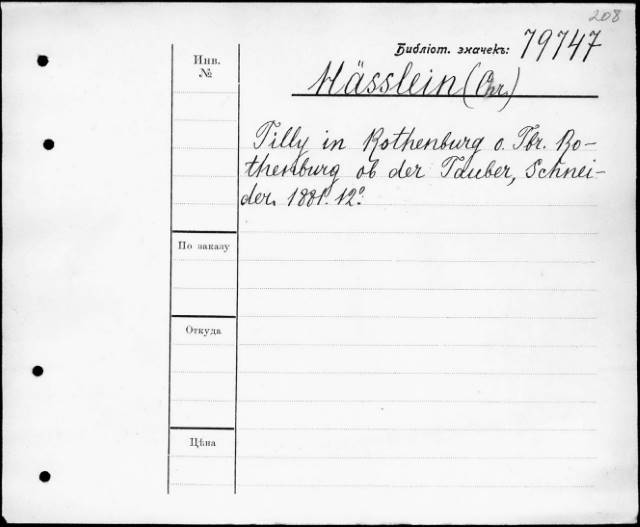 208
Библіот. значекъ: 79747
Инв.
№
Hässlein (Chr.)
Tilly in Rothenburg o. Tbr. Ro-
thenburg ob der Tauber, Schnei-
der. 1881. 12°.
По заказу
Откуда
Цѣна